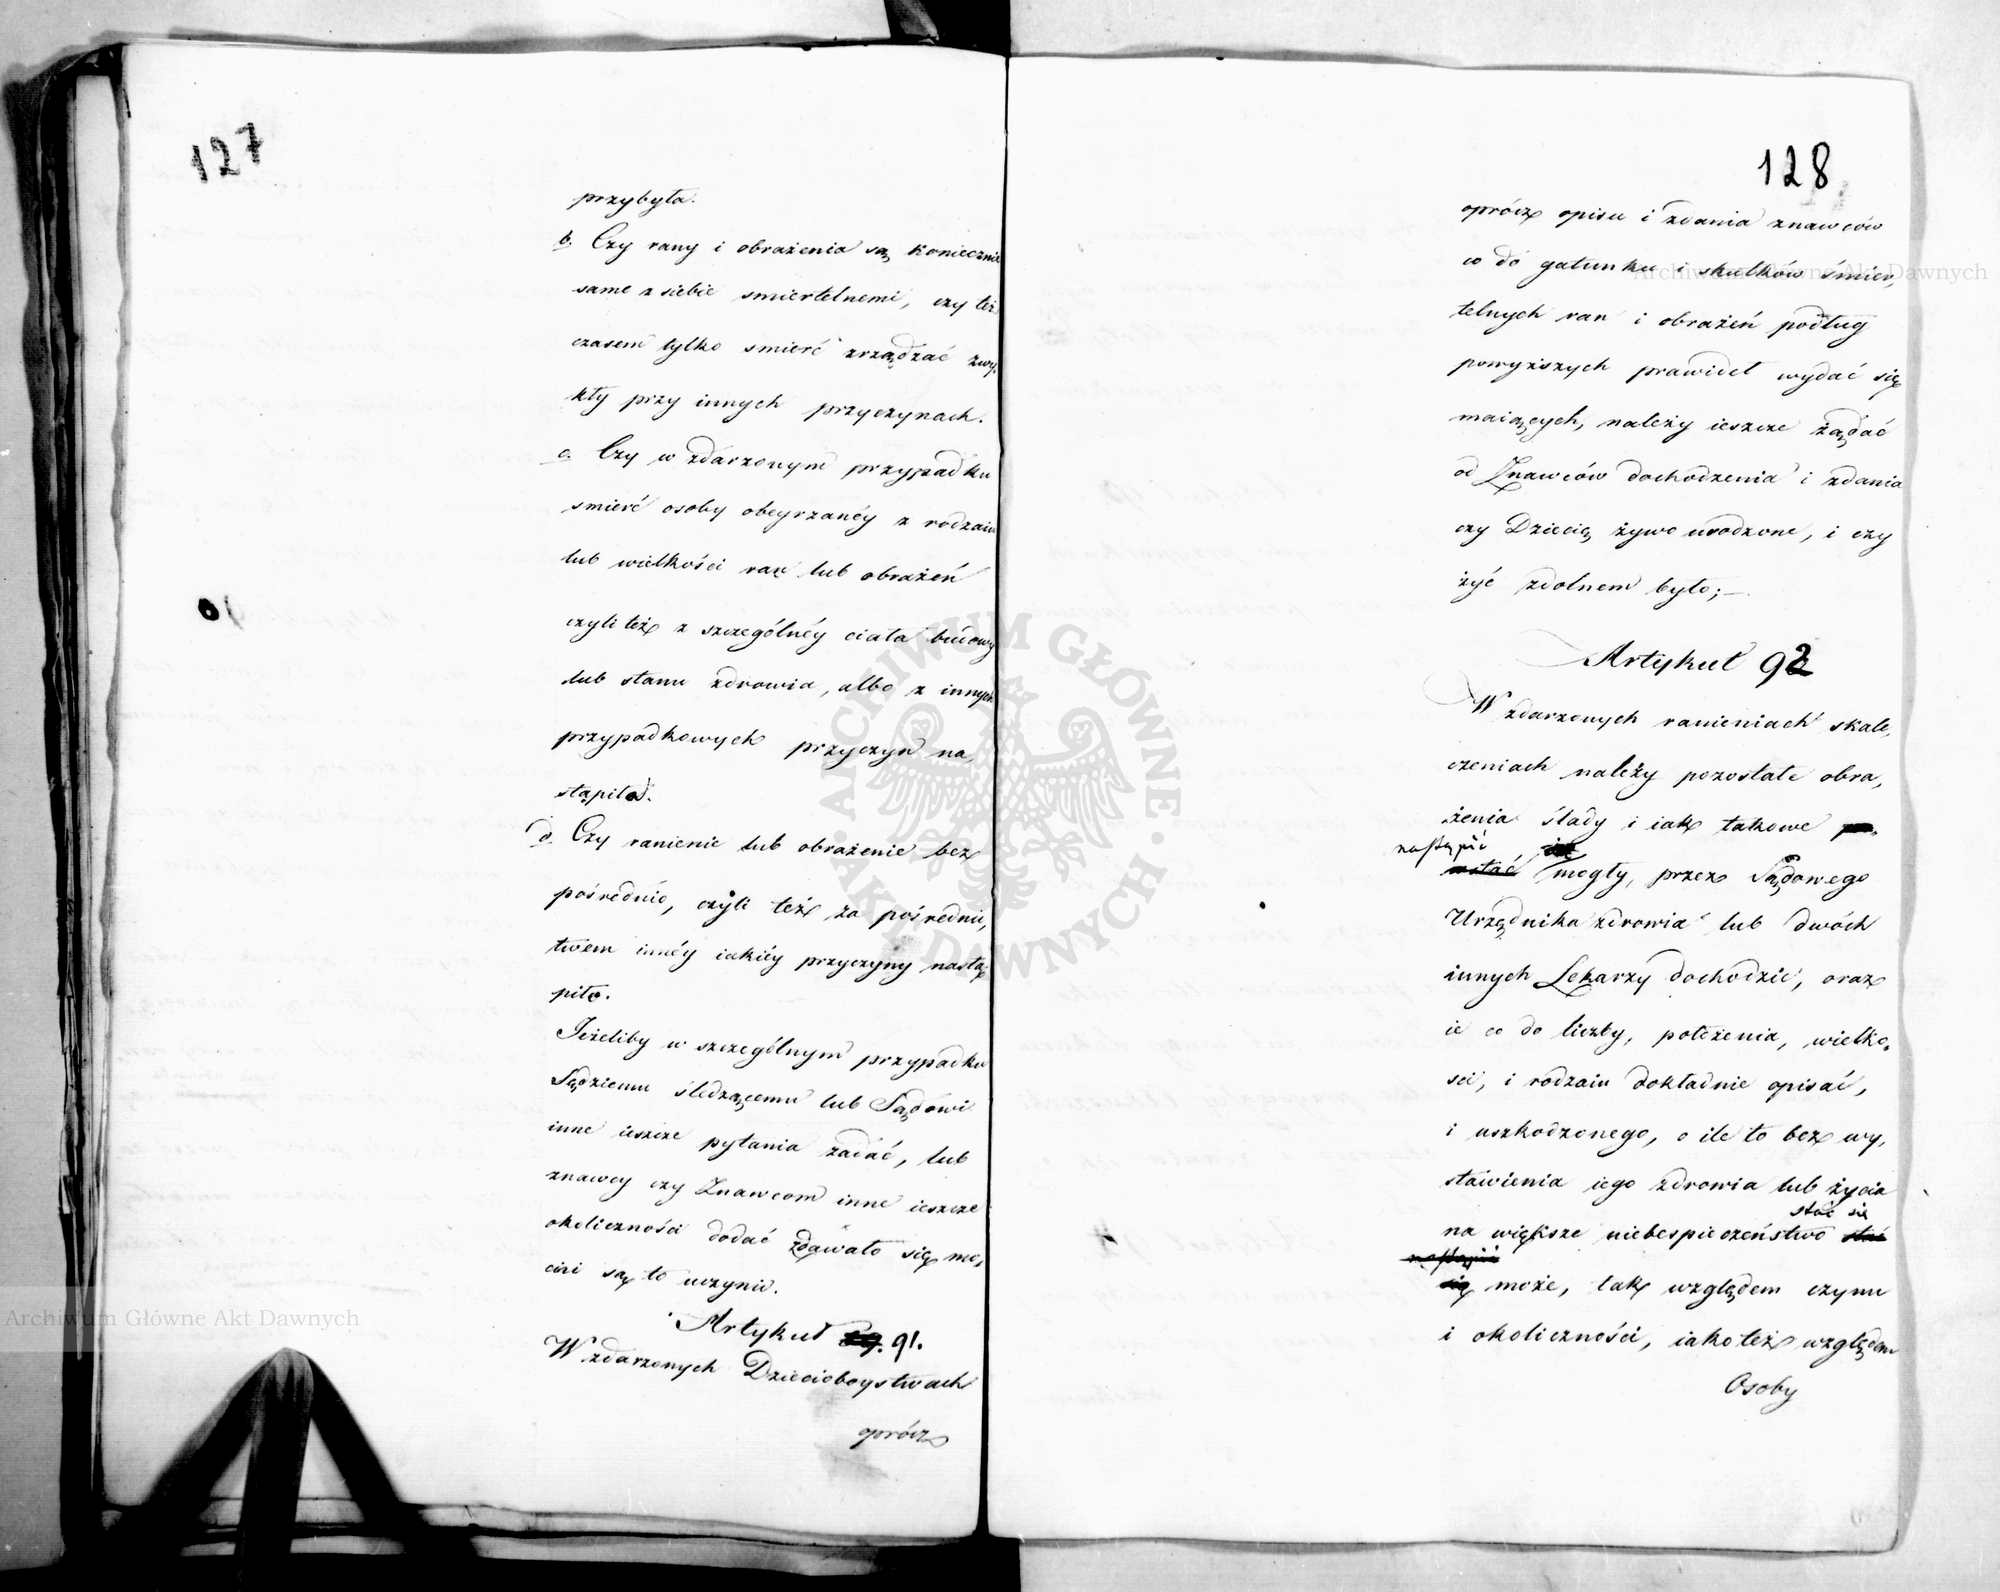 127
przybyła.
b. Czy rany i obrażenia są koniecznie
same z siebie smiertelnemi, czy też
czasem tylko smierć zrządzać zwy,
kły przy innych przyczynach.
c. Czy w zdarzonym przypadku
smierć osoby obeyrzanéy z rodzaiu
lub wielkości ran lub obrażeń
czyli też z szczególnéy ciała budowy
lub stanu zdrowia, albo z innych
przypadkowych przyczyn na,
stąpiła.
d. Czy ranienie lub obrażenie bez
pośrednio, czyli też za pośrednic,
twem innéy iakiéy przyczyny nastą,
piło.
Jeżeliby w szczególnym przypadku
Sędziemu śledzącemu lub Sądowi
inne ieszcze pytania zadać, lub
znawcy czy Znawcom inne ieszcze
okoliczności dodać zdawało się mo,
cni są to uczynić.
Artykuł 91.
W zdarzonych Dzieciobóystwach
oprócz
128
oprócz opisu i zdania znawców
co do gatunku i skutków śmier,
telnych ran i obrażeń podług
powyższych prawideł wydać się
maiących, należy ieszcze żądać
od Znawców dochodzenia i zdania
czy Dziecię żywo urodzone, i czy
żyć zdolnem było;
Artykuł 92
W zdarzonych ranieniach skale,
czeniach należy pozostałe obra,
żenia ślady i iak takowe po,
nastąpić
wstać mogły, przez Sądowego
Urzędnika zdrowia lub dwóch
innych Lekarzy dochodzić, oraz
ie co do liczby, położenia, wielko,
sci, i rodzaiu dokładnie opisać,
i uszkodzonego, o ile to bez wy,
stawienia iego zdrowia lub życia
stać się
na większe niebespieczeństwo stać
nastąpić
się może, tak względem czynu
i okoliczności, iako też względem
Osoby
Archiwum Główne Akt Dawnych
Archiwum Główne Akt Dawnych
ARCHIWUM GŁÓWNE
AKT DAWNYCH